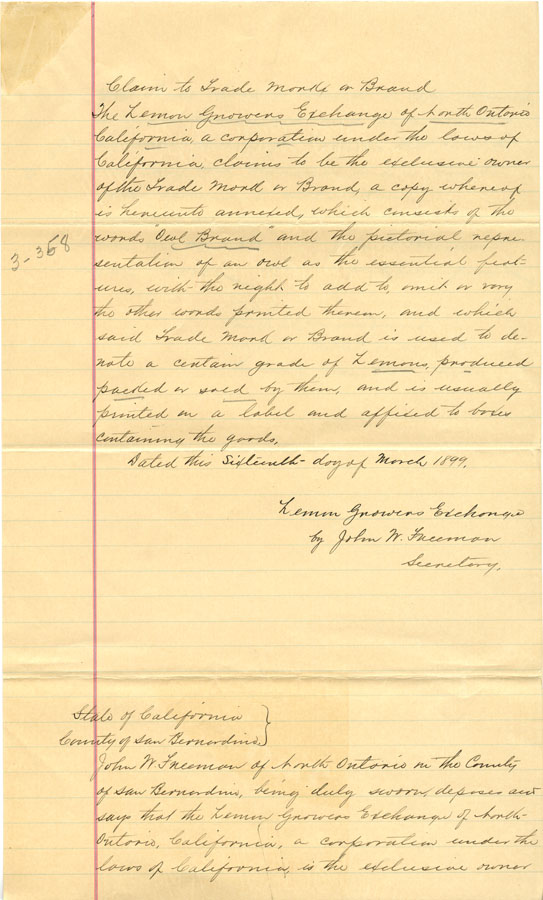 Claim to Trade Mark or Brand
The Lemon Growers Exchange of North Ontario
California, a corporation under the laws of
California, claims to be the exclusive owner
of the Trade Mark or Brand, a copy whereof
is hereunto annexed, which consists of the
words "Owl Brand" and the pictorial repre-
3-358
sentation of an owl as the essential feat-
ures, with the right to add to, omit or vary
the other words printed therein, and which
said Trade Mark or Brand is used to de-
note a certain grade of Lemons, produced
packed or sold by them, and is usually
printed on a label and affixed to boxes
containing the goods.
Dated this Sixteenth day of March 1899.
Lemon Growers Exchange
by John W. Freeman
Secretary.
State of California }
County of San Bernardino. }
John W Freeman of North Ontario in the County
of San Bernardino, being duly sworn, deposes and
says that the Lemon Growers Exchange of North
Ontario, California, a corporation under the
laws of California, is the exclusive owner